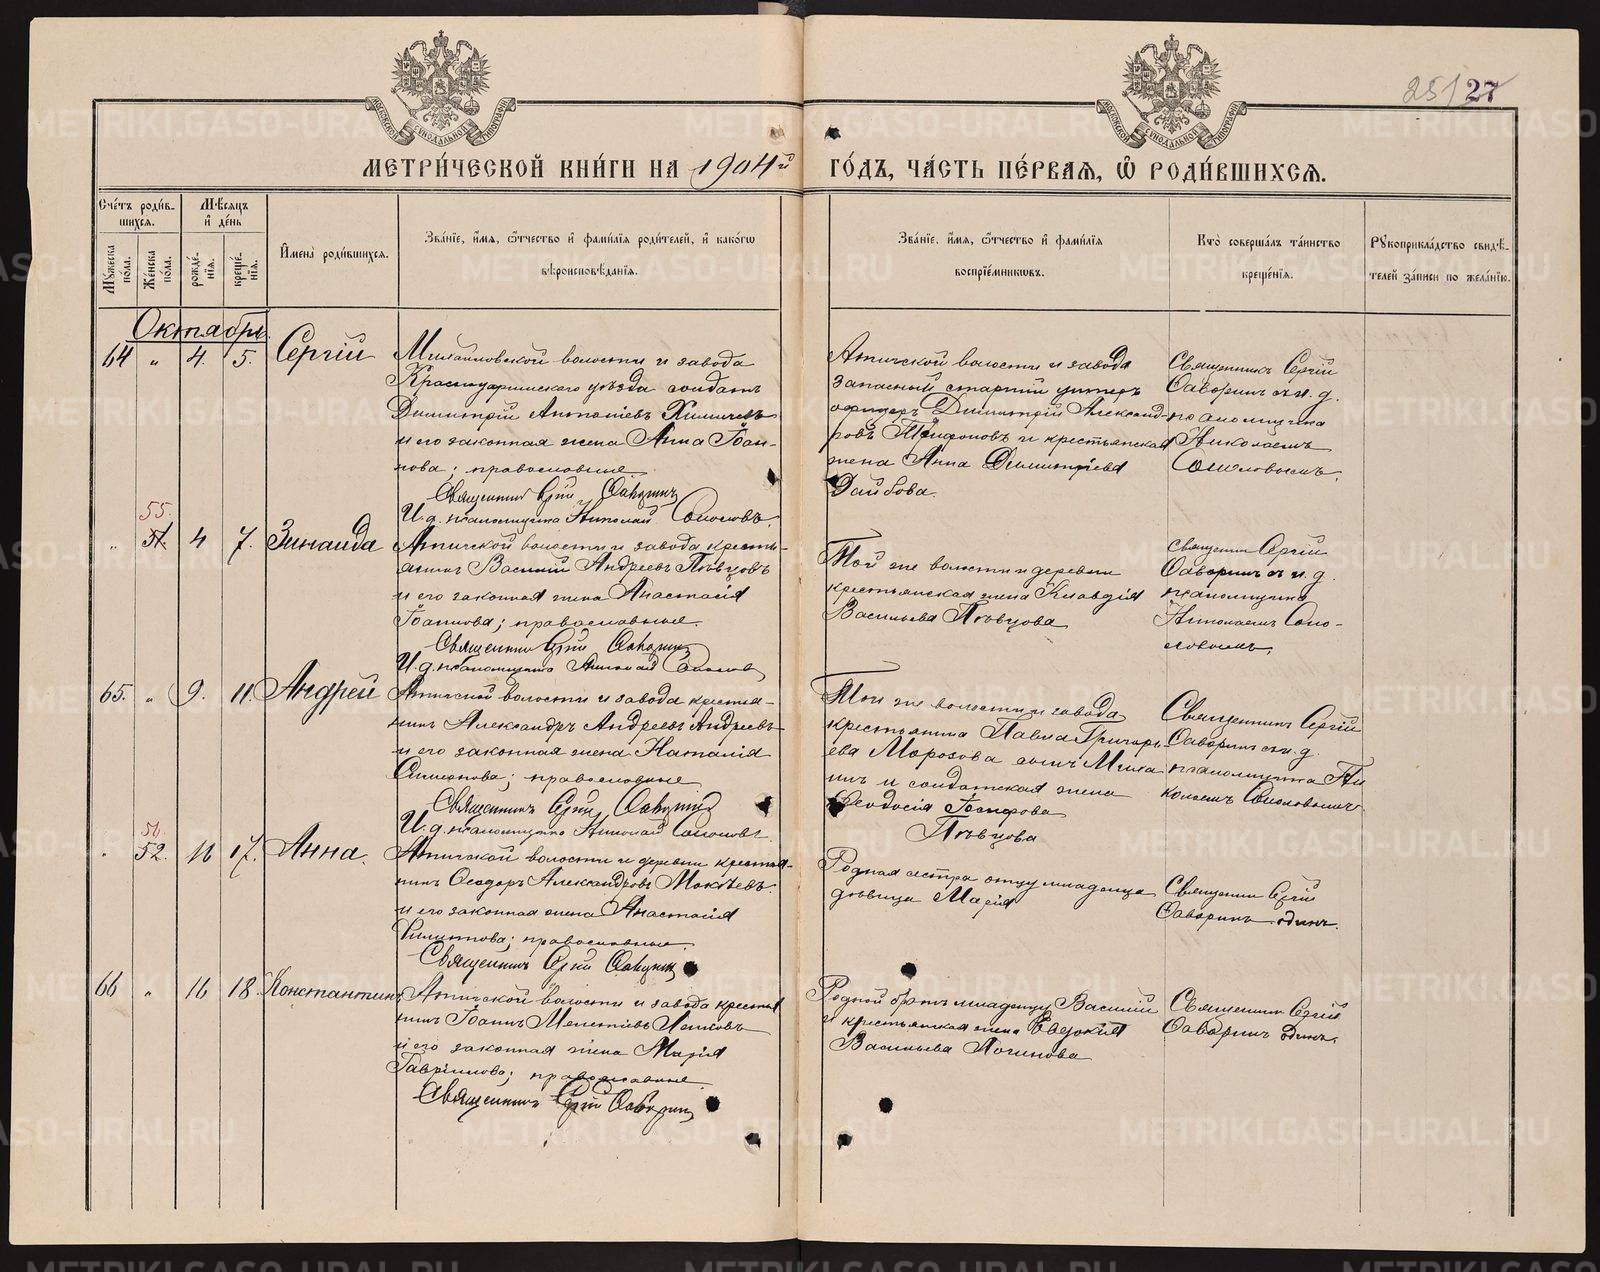 251 27
МЕТРИ́ЧЕСКОЙ КНИ́ГИ НА 1904й ГО́ДЪ, ЧА́СТЬ ПЕ́РВАѦ, Ѽ РОДИ́ВШИХСѦ.
Сче́тъ роди́в-
шихсѧ.
Мꙋжеска по́ла.
Же́нска по́ла.
Мѣ́сѧцъ
и҆ де́нь
рожде́-
нїѧ.
креще́-
нїѧ.
И҆мена̀ роди́вшихсѧ.
Зва́нїе, и҆́мѧ, ѻ҆́тчество и҆ фами́лїѧ роди́телей, и҆ како́гѡ
вѣроисповѣ́данїѧ.
Зва́нїе, и҆́мѧ, ѻ҆́тчество и҆ фами́лїѧ
воспрїе́мникѡвъ.
Кто̀ соверша́лъ та́инство
креще́нїѧ.
Рꙋкоприкла́дство свидѣ́-
телей за́писи по жела́нїю.
Октябрь.
64 " 4. 5. Сергій
Михайловской волости и завода
Красноуфимскаго уѣзда солдатъ
Димитрій Антоніевъ
и его законная жена Анна Іоан-
нова; православные
Священникъ Сергій
И.д. псаломщика Николай Соколовъ.
Атигской волости и завода
запасный старшій унтеръ
офицеръ Димитрій Александ-
ровъ и крестьянская
жена Анна Димитріева
Священникъ Сергій
съ и.д.
псаломщика
Николаемъ
Соколовымъ.
55.
" 51. 4 7. Зинаида
Атигской волости и завода кресть-
янинъ Василій Андреевъ Пѣвцовъ
и его законная жена Анастасія
Іоаннова; православные.
Священникъ Сергій
И.д. псаломщика Николай Соколовъ
Той же волости и деревни
крестьянская жена Клавдія
Васильева Пѣвцова
Священник Сергій
съ и.д.
псаломщика
Николаемъ Соко-
ловымъ.
65. " 9. 11. Андрей
Атигской волости и завода крестья-
нинъ Александръ Андреевъ Андреевъ
и его законная жена Наталія
православные
Священникъ Сергій
И.д. псаломщика Николай Соколовъ.
Той же волости и завода
крестьянина Павла Григорь-
ева Морозова сынъ Миха-
илъ и солдатская жена
Ѳеодосія
Пѣвцова
Священникъ Сергій
съ и.д.
псаломщика Ни
колаемъ Соколовымъ
52. 16 17. Анна.
Атигской волости и деревни крестья-
нинъ Ѳеодоръ Александровъ Мокѣевъ
и его законная жена Анастасія
Филиппова; православные.
Священникъ Сергій
Родная сестра отцу младенца
дѣвица Марія
Священникъ Сергій
одинъ.
66 " 16 18 Константинъ
Атигской волости и завода крестья
нинъ Іоаннъ
и его законная жена Марія
Гавріилова; православные.
Священникъ Сергій
Родной братъ младенцу Василій
и крестьянская жена Евдокія
Васильева Логинова
Священникъ Сергій
одинъ.
METRIKI.GASO-URAL.RU